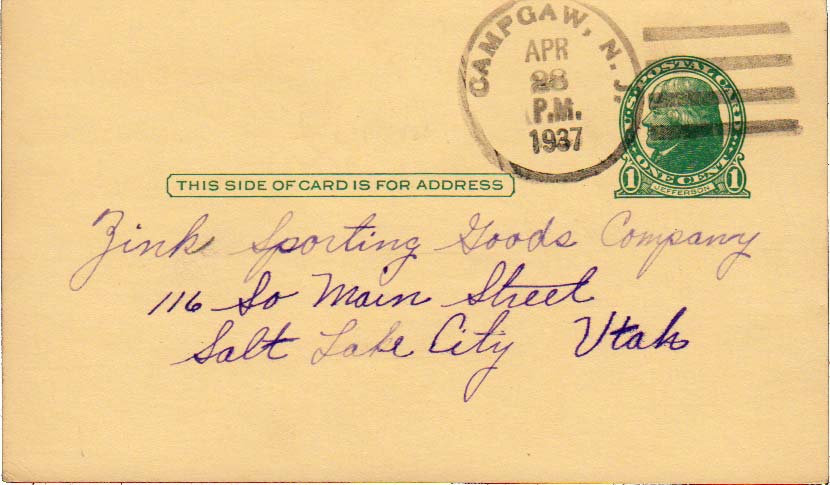 CAMPGAW, N. J.
APR
28
P.M.
1937
U·S·POSTAL CARD
ONE CENT
1 JEFFERSON 1
THIS SIDE OF CARD IS FOR ADDRESS
Zink Sporting Goods Company
116 So Main Street
Salt Lake City Utah